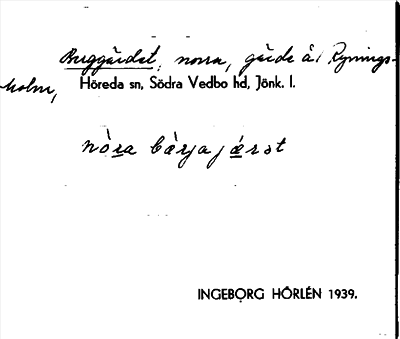 Berggärdet, norra, gärde å Rynings-
holm,
Höreda sn, Södra Vedbo hd, Jönk. l.
nòra bærjajæṛət
INGEBORG HÖRLÉN 1939.